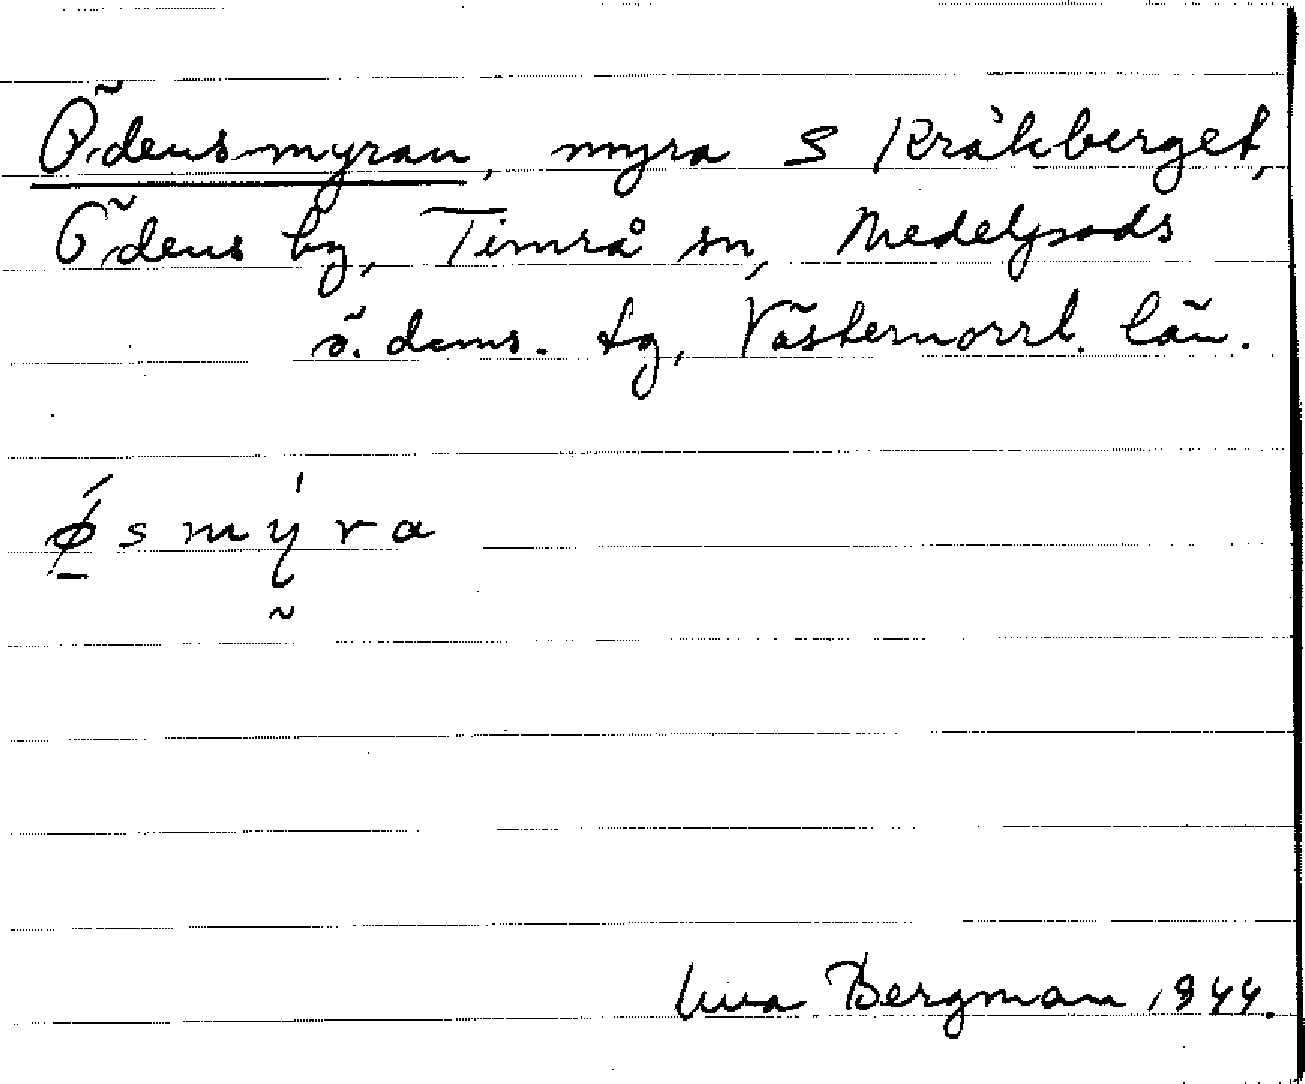 Ödensmyran, myra S Kråkberget,
Ödens by, Timrå sn, Medelpads
ö. doms. tg, Västernorrl. län.
ǿsmýra
Bergman 1944.